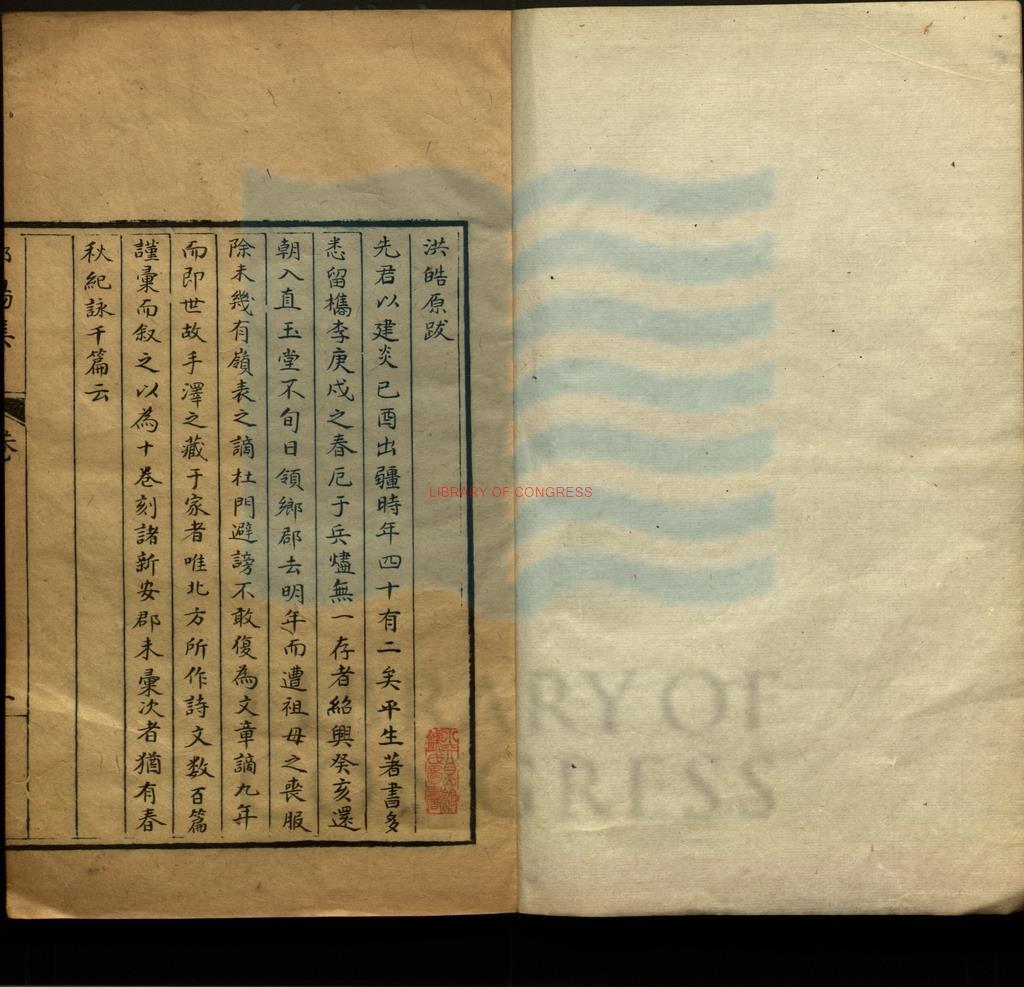 洪皓原跋
先君以建炎已酉出疆時年四十有二矣平生著書多
悉留檇李庚戍之春厄于兵燼無一存者紹興癸亥還
朝入直玉堂不旬日領鄉郡去明年而遭祖母之喪服
除未幾有嶺表之謫杜門避謗不敢復為文章謫九年
而即世故手澤之藏于家者唯北方所作詩文数百篇
謹彙而叙之以為十卷刻諸新安郡未彙次者猶有春
秋紀詠千篇云
LIBRARY OF CONGRESS